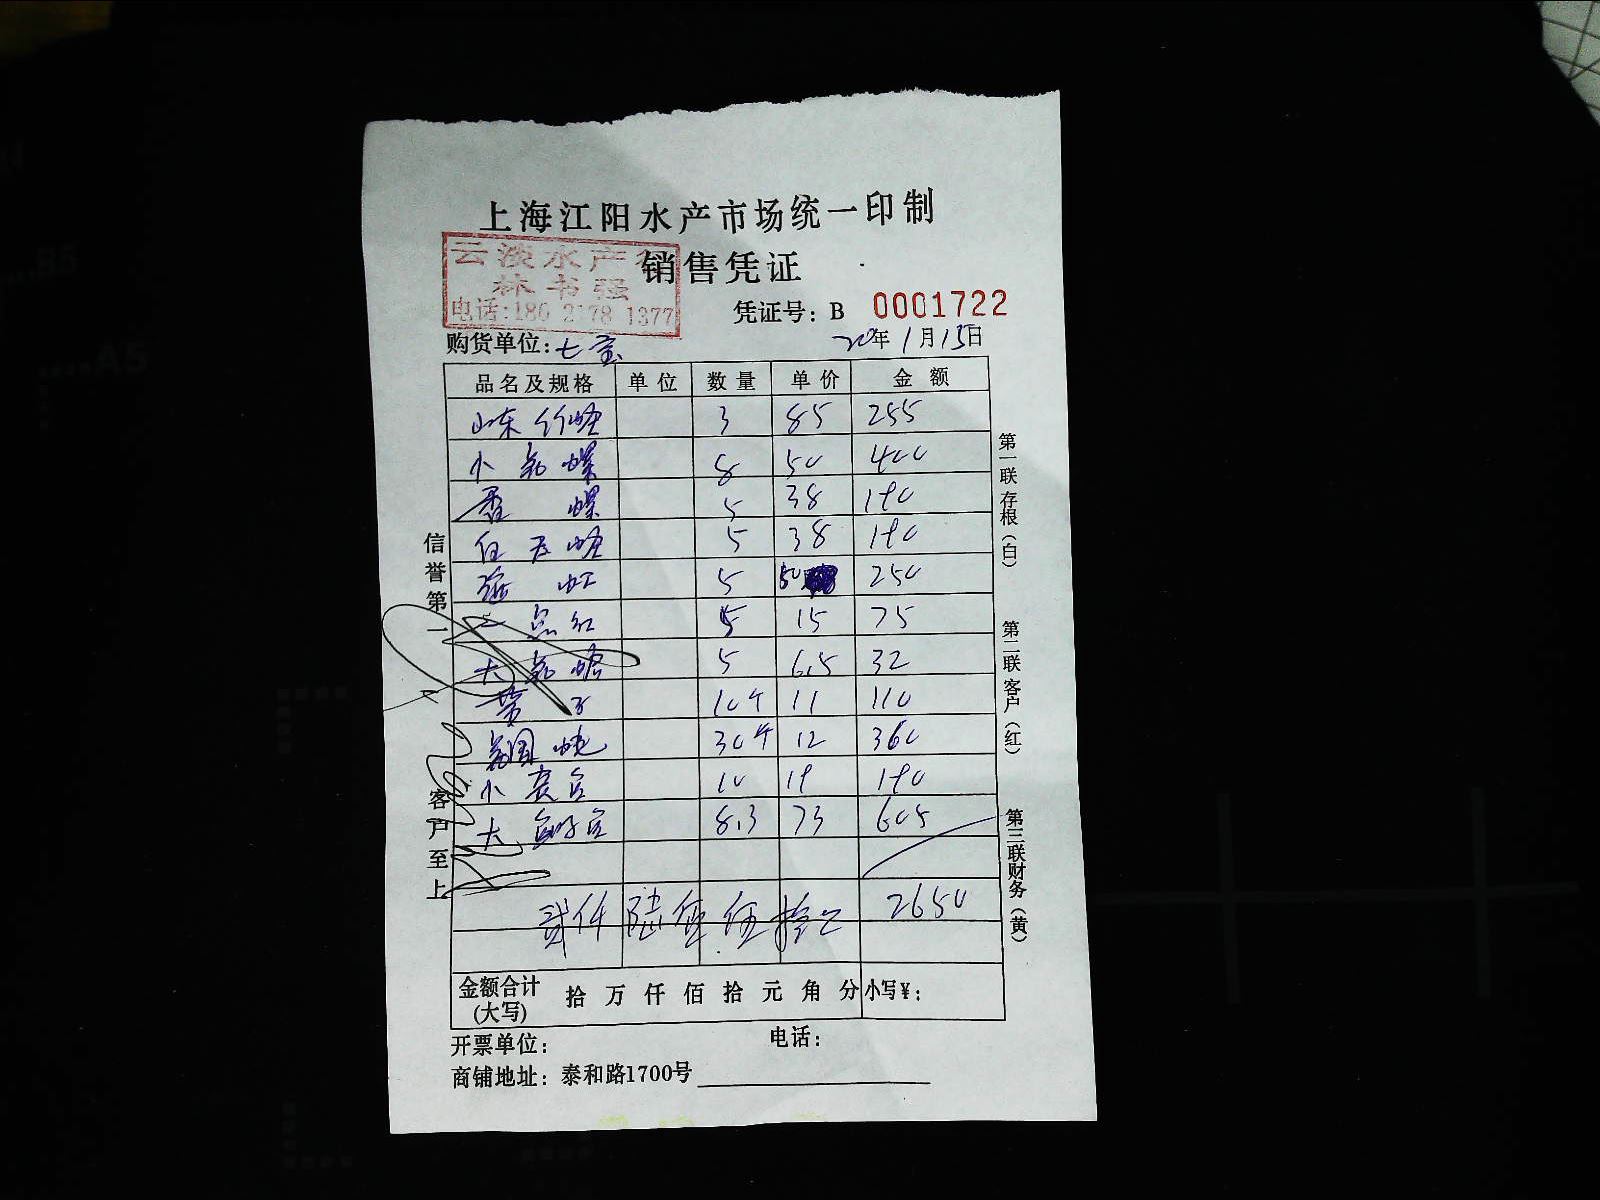 上海江阳水产市场统一印制
云淡水产行
销售凭证
林书强
电话:180 2178 1377
凭证号: B 0001722
购货单位: 七宝
20年1月15日
品名及规格 单位 数量 单价 金额
山东竹蛏 3 85 255
小 螺 8 50 400
香螺 5 38 190
蛏 5 38 190
虹 5 50 250
点红 5 15 75
大 5 6.5 32
10个 11 110
30个 12 360
小 10 19 190
大 8.3 73 605
贰仟陆佰伍拾元 2650
金额合计(大写) 拾 万 仟 佰 拾 元 角 分 小写¥:
开票单位: 电话:
商铺地址: 泰和路1700号
信誉第一 客户至上
第一联 存根(白)
第二联 客户(红)
第三联 财务(黄)